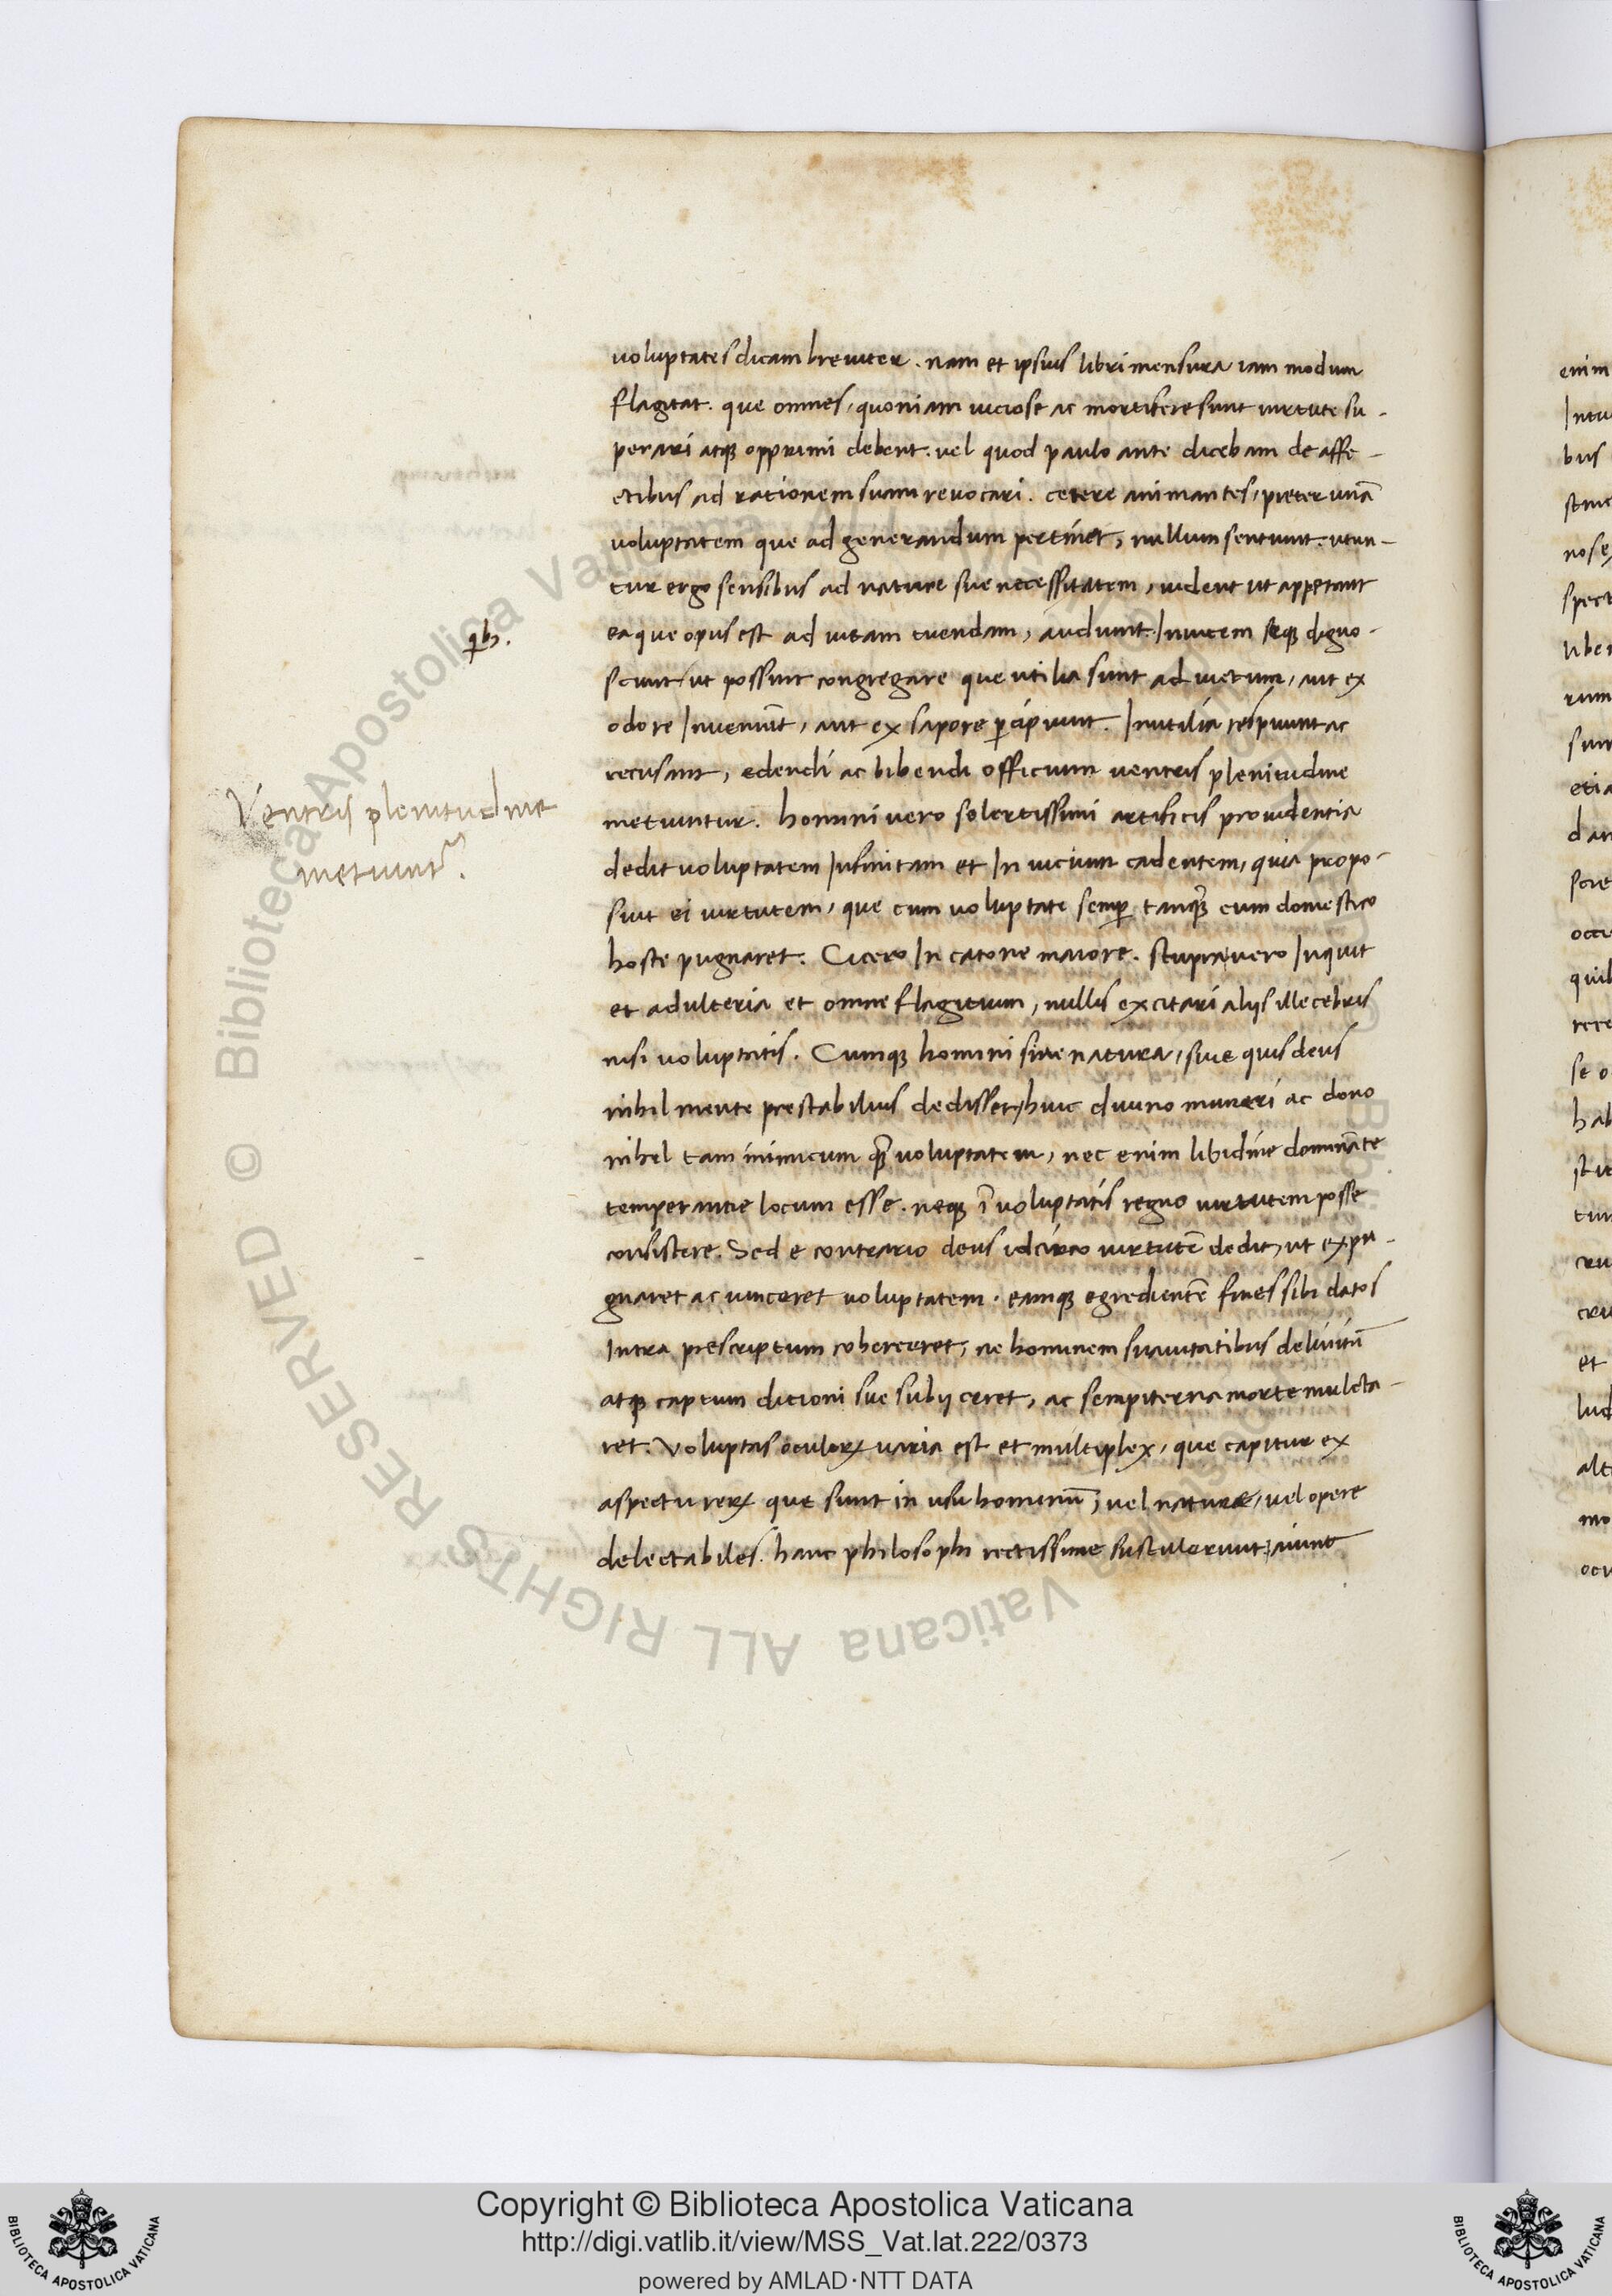 voluptates dicam breuiter. nam et ipsius libri mensura iam modum
flagitat. que omnes, quoniam uiciose ac mortifere sunt uirtute su-
perari atqꝫ opprimi debent. uel quod paulo ante dicebam de affe-
ctibus ad rationem suam reuocari. cetere animantes, preter unā
voluptatem que ad generandum pertinet, nullum sentiunt. utun-
tur ergo sensibus ad nature sue necessitatem, uident ut appetant
ea que opus est ad uitam tuendam, audiunt Inuicem seqꝫ digno-
scunt, ut possint congregare que utilia sunt ad uictum, aut ex
odore Inueniūt, aut ex sapore ꝑcipiunt. Inutilia respuunt ac
recusant, edendi ac bibendi officium uentris plenitudine
metiuntur. homini uero solertissimi artificis prouidentia
dedit uoluptatem Infinitam et In uicium cadentem, quia propo-
suit ei uirtutem, que cum uoluptate semꝑ tanqꝫ̄ cum domestico
hoste pugnaret. Cicero In catone maiore. stupra uero Inquit
et adulteria et omne flagitium, nullis excitari alijs illecebris
nisi uoluptatis. Cumqꝫ homini siue natura, siue quis deus
nihil mente prestabilius dedisset, huic diuino muneri ac dono
nihil tam inimicum qꝫ̄ uoluptatem, nec enim libidine domināte
temperantie locum esse. neqꝫ ī uoluptatis regno uirtutem posse
consistere. Sed e contrario deus idcirco uirtutē dedit, ut expu-
gnaret ac uinceret uoluptatem. eamqꝫ egredientē fines sibi datos
Intra prescriptum coherceret, ne hominem suauitatibus delinitū
atqꝫ captum dicioni sue subijceret, ac sempiterna morte mulcta-
ret. Voluptas oculoꝝ uaria est et multiplex, que capitur ex
aspectu reꝝ que sunt in usu hominū, uel natura, uel opere
delectabiles. hanc philosophi rectissime sustulerunt, aiunt
Ventris plenitudine
metiunt᷑.
Copyright © Biblioteca Apostolica Vaticana
http://digi.vatlib.it/view/MSS_Vat.lat.222/0373
powered by AMLAD·NTT DATA
BIBLIOTECA APOSTOLICA VATICANA
BIBLIOTECA APOSTOLICA VATICANA